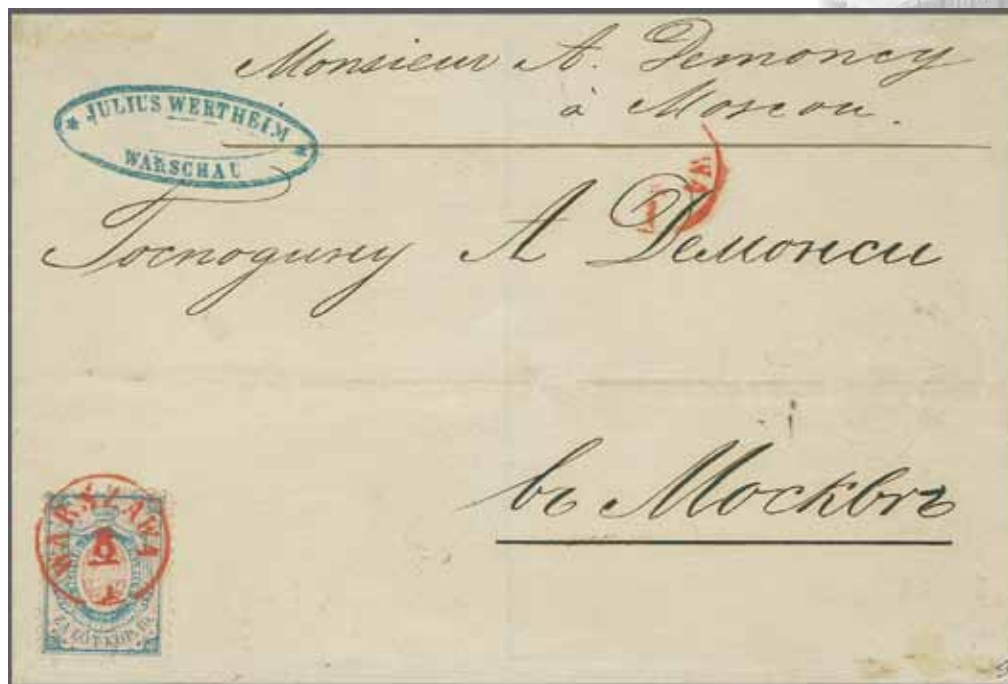 Monsieur A. Demoncy
à Moscou.
* JULIUS WERTHEIM *
WARSCHAU
WA
Господину А Демонси
въ Москвѣ
WARSZAWA
ZA ŁÓT KOP.